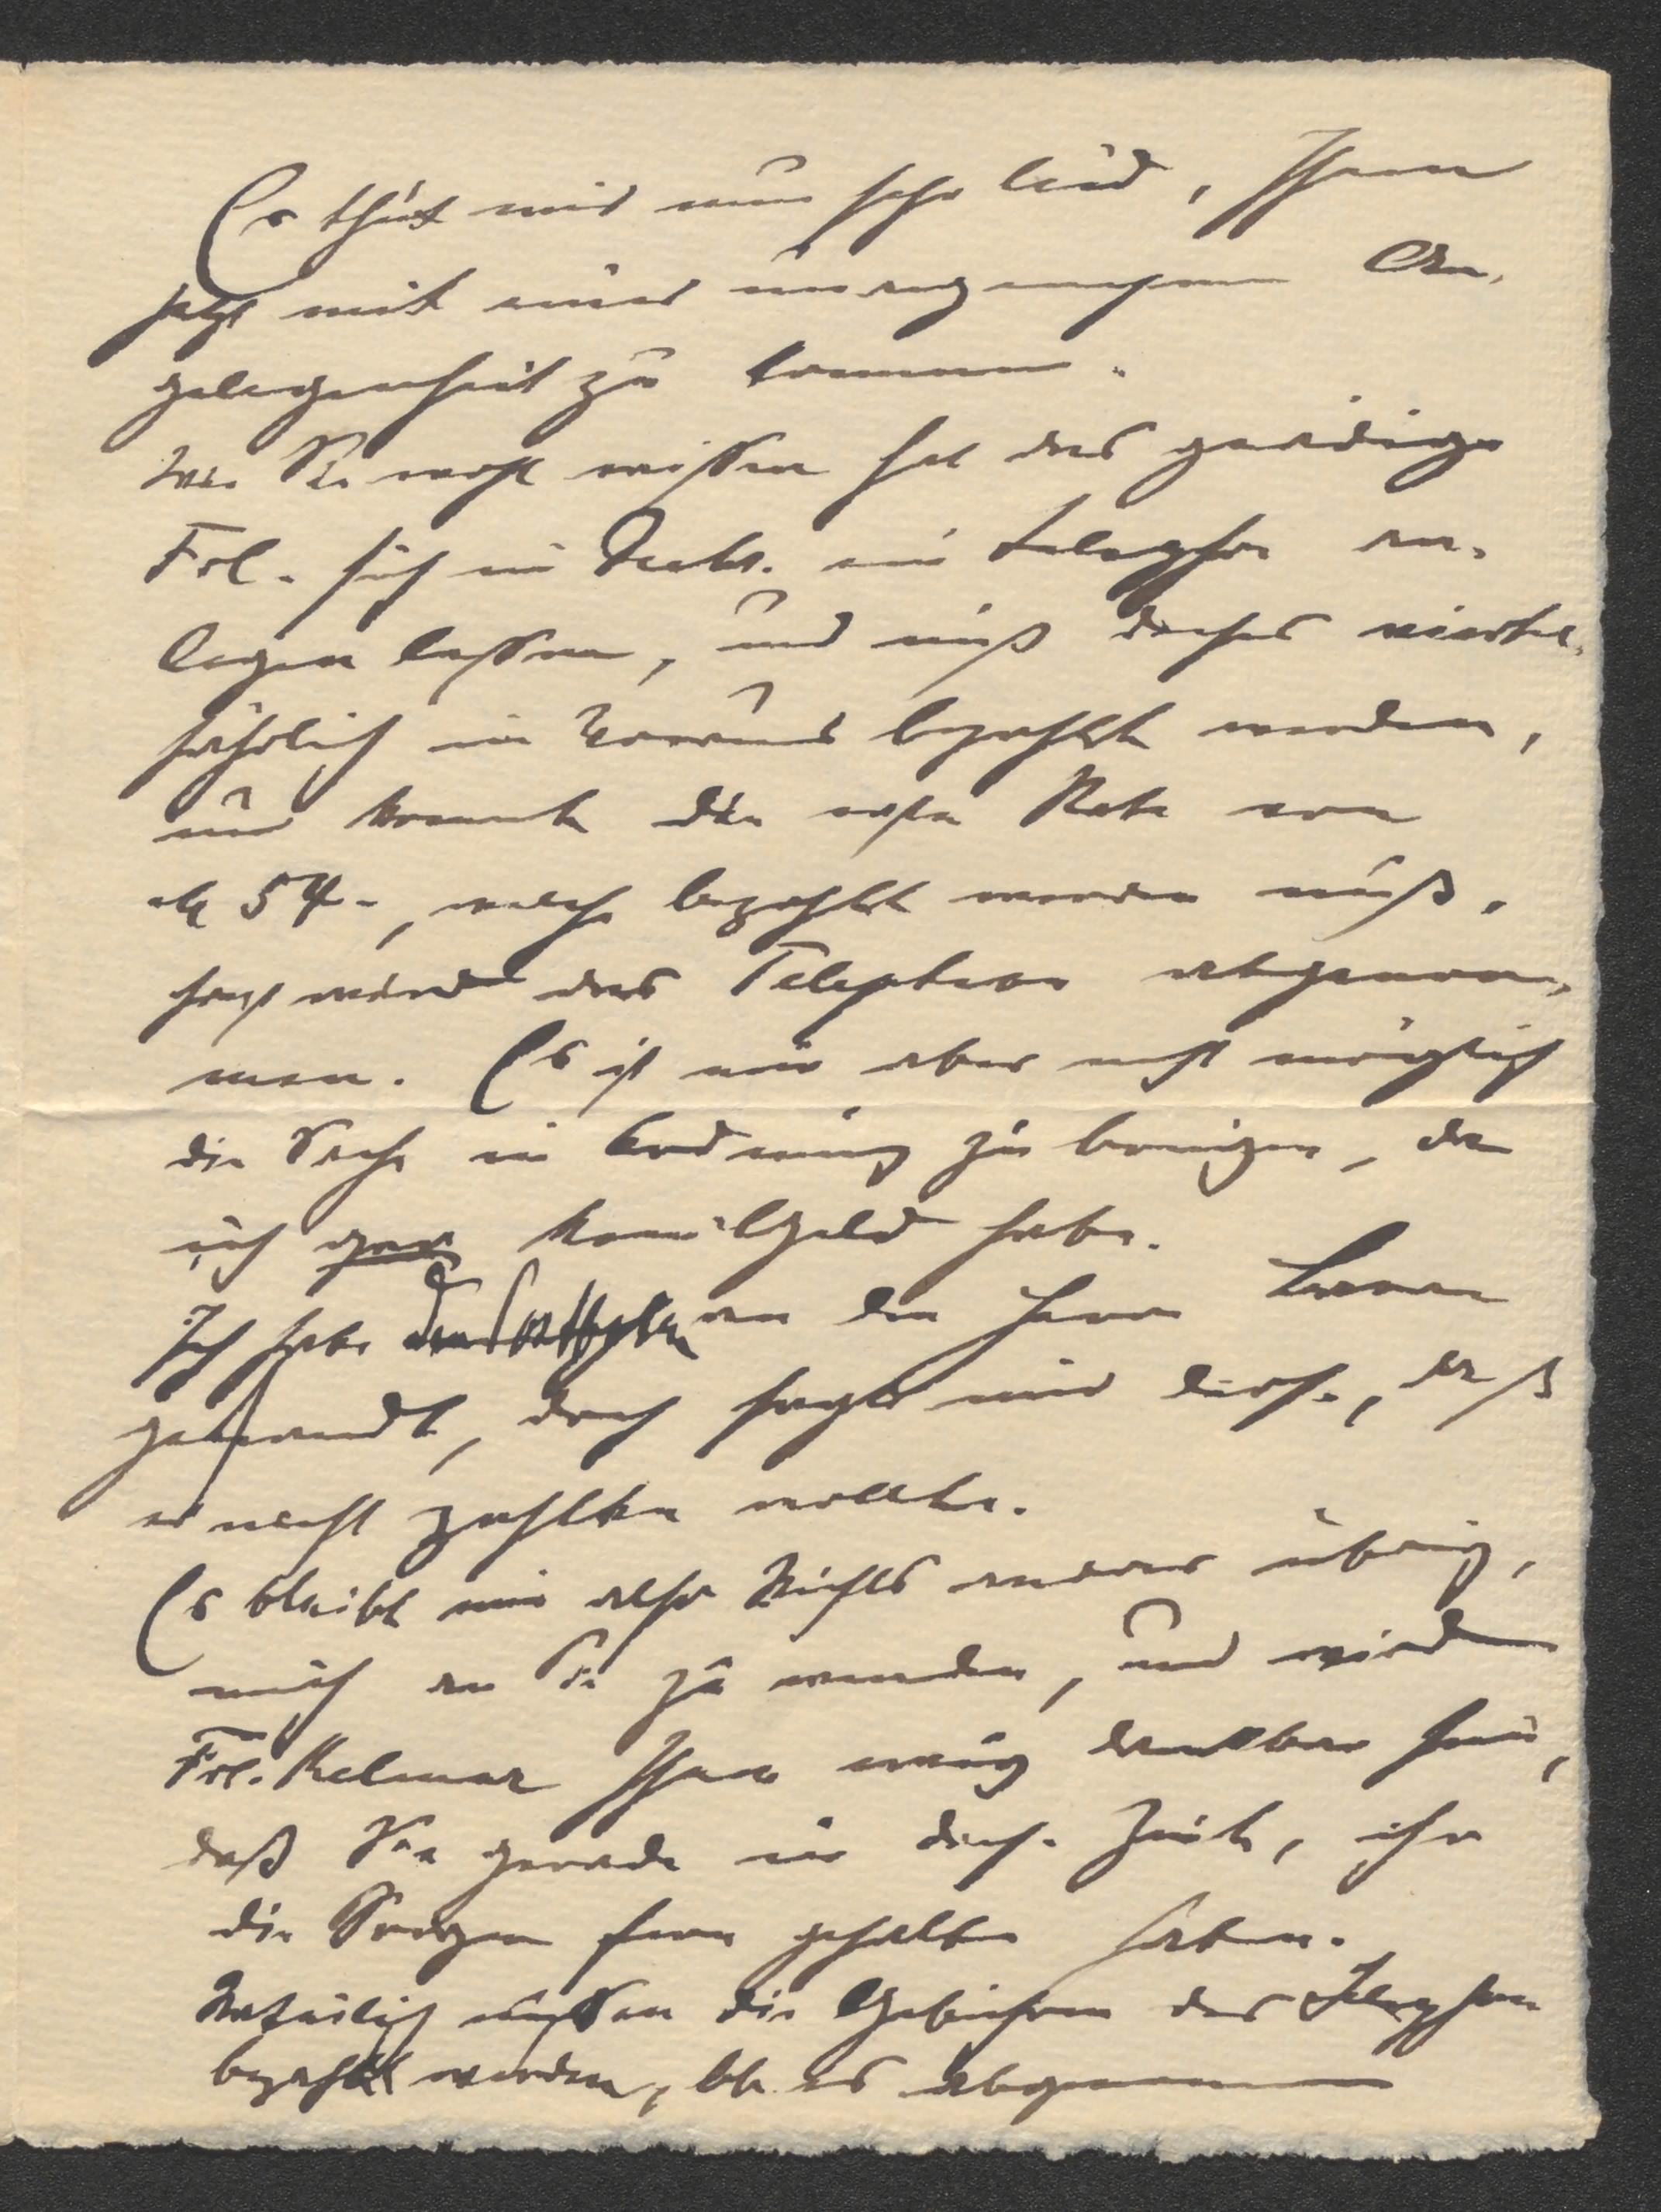 Es thut mir nun sehr leid, Ihnen
jetzt mit einer unangenehmen An-
gelegenheit zu kommen.
Wie Sie wohl wissen hat das gnädige
Frl. sich in ein Telephon an-
legen lassen, und muß dasselbe viertel-
jährlich im Voraus bezahlt werden,
nun kommt die erste Rate von
M 54-, welche bezahlt werden muß,
sonst wird das Telephon abgenom-
men. Es ist mir aber nicht möglich
die Sache in Ordnung zu bringen, da
ich gar kein Geld habe.
Ich habe an den Herrn
gewandt, doch sagte mir dieser, daß
er nicht zahlen wollte.
Es bleibt mir also Nichts anderes übrig,
mich an Sie zu wenden, und wird
Frl. Kalmar Ihnen ewig dankbar sein,
daß Sie gerade in dieser Zeit, ihr
die Sorgen fern gehalten haben.
Natürlich müssen die Gebühren des Telephon
bezahlt werden, bis es abgenommen